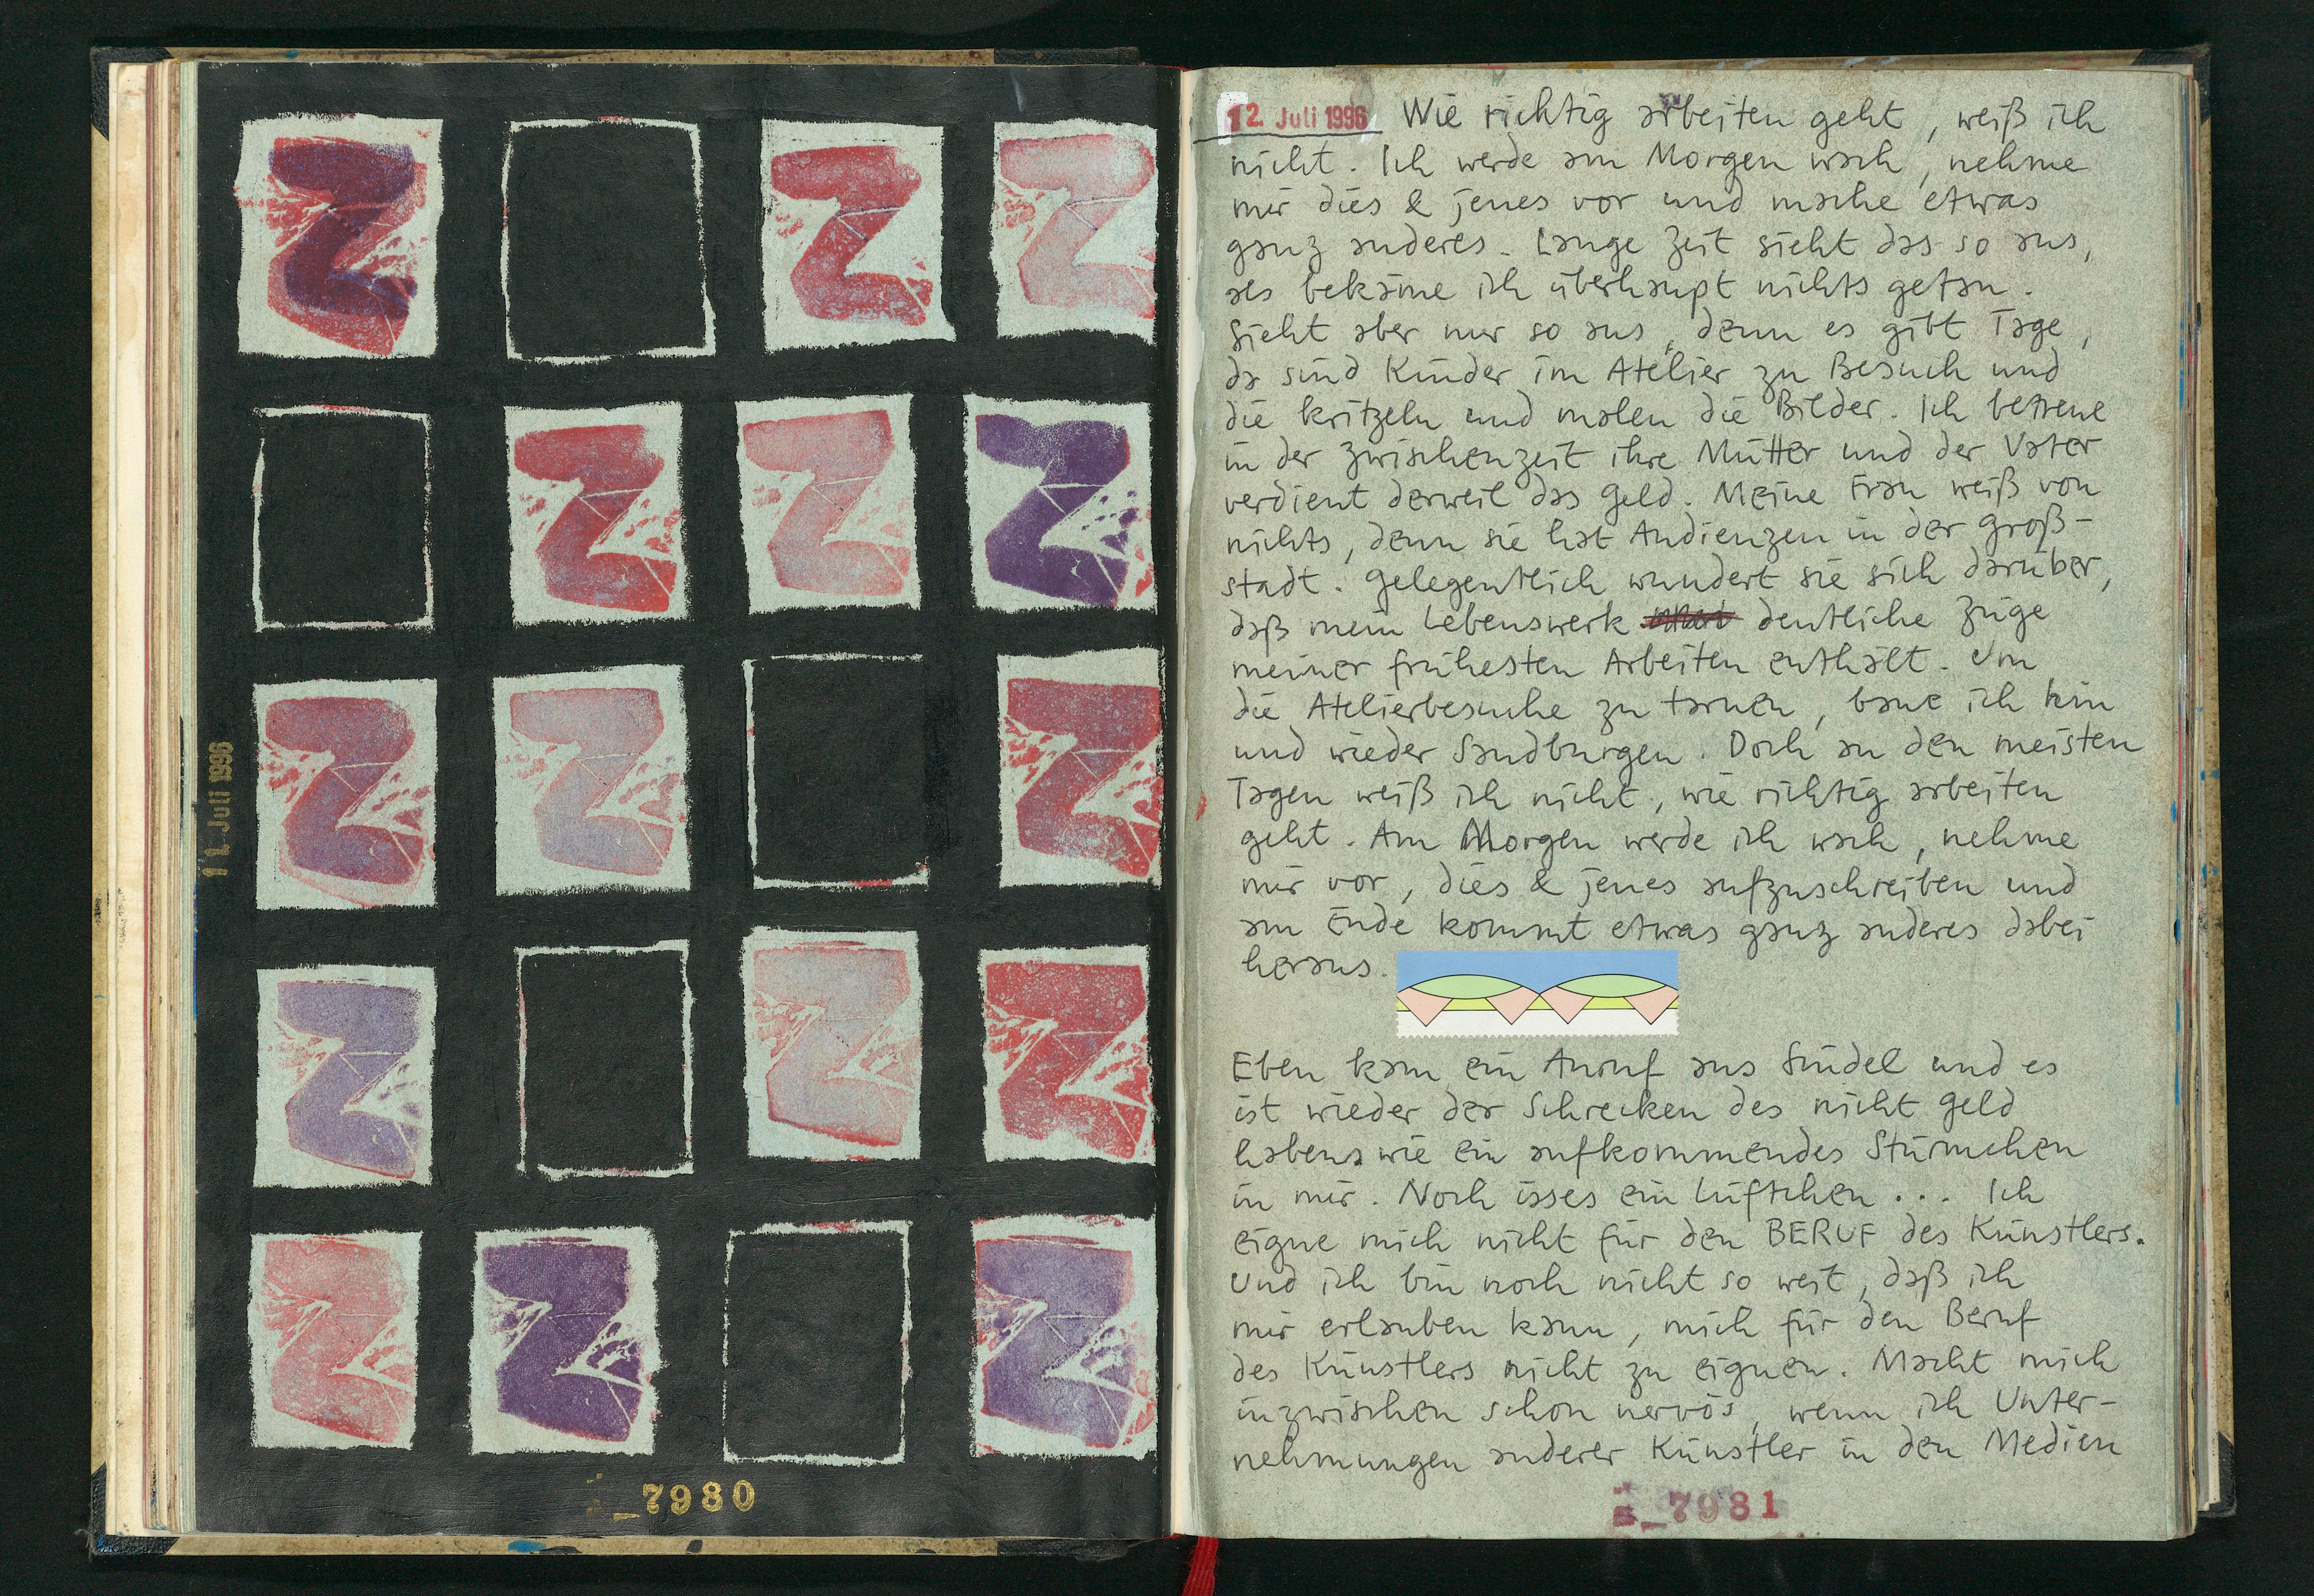 11. Juli 1996
_7980
12. Juli 1996 Wie richtig arbeiten geht, weiß ich
nicht. Ich werde am Morgen wach, nehme
mir dies & jenes vor und mache etwas
ganz anderes. Lange Zeit sieht das so aus,
als bekäme ich überhaupt nichts getan.
Sieht aber nur so aus, denn es gibt Tage,
da sind Kinder im Atelier zu Besuch und
die kritzeln und malen die Bilder. Ich betreue
in der Zwischenzeit ihre Mütter und der Vater
verdient derweil das Geld. Meine Frau weiß von
nichts, denn sie hat Audienzen in der Groß-
stadt. Gelegentlich wundert sie sich darüber,
daß mein Lebenswerk deutliche Züge
meiner frühesten Arbeiten enthält. Um
die Atelierbesuche zu tarnen, baue ich hin
und wieder Sandburgen. Doch an den meisten
Tagen weiß ich nicht, wie richtig arbeiten
geht. Am Morgen werde ich wach, nehme
mir vor, dies & jenes aufzuschreiben und
am Ende kommt etwas ganz anderes dabei
heraus.
Eben kam ein Anruf aus Sindel und es
ist wieder der Schrecken des nicht Geld
habens wie ein aufkommendes Stürmchen
in mir. Noch isses ein Lüftchen... Ich
eigne mich nicht für den BERUF des Künstlers.
Und ich bin noch nicht so weit, daß ich
mir erlauben kann, mich für den Beruf
des Künstlers nicht zu eignen. Macht mich
inzwischen schon nervös, wenn ich Unter-
nehmungen anderer Künstler in den Medien
_7981